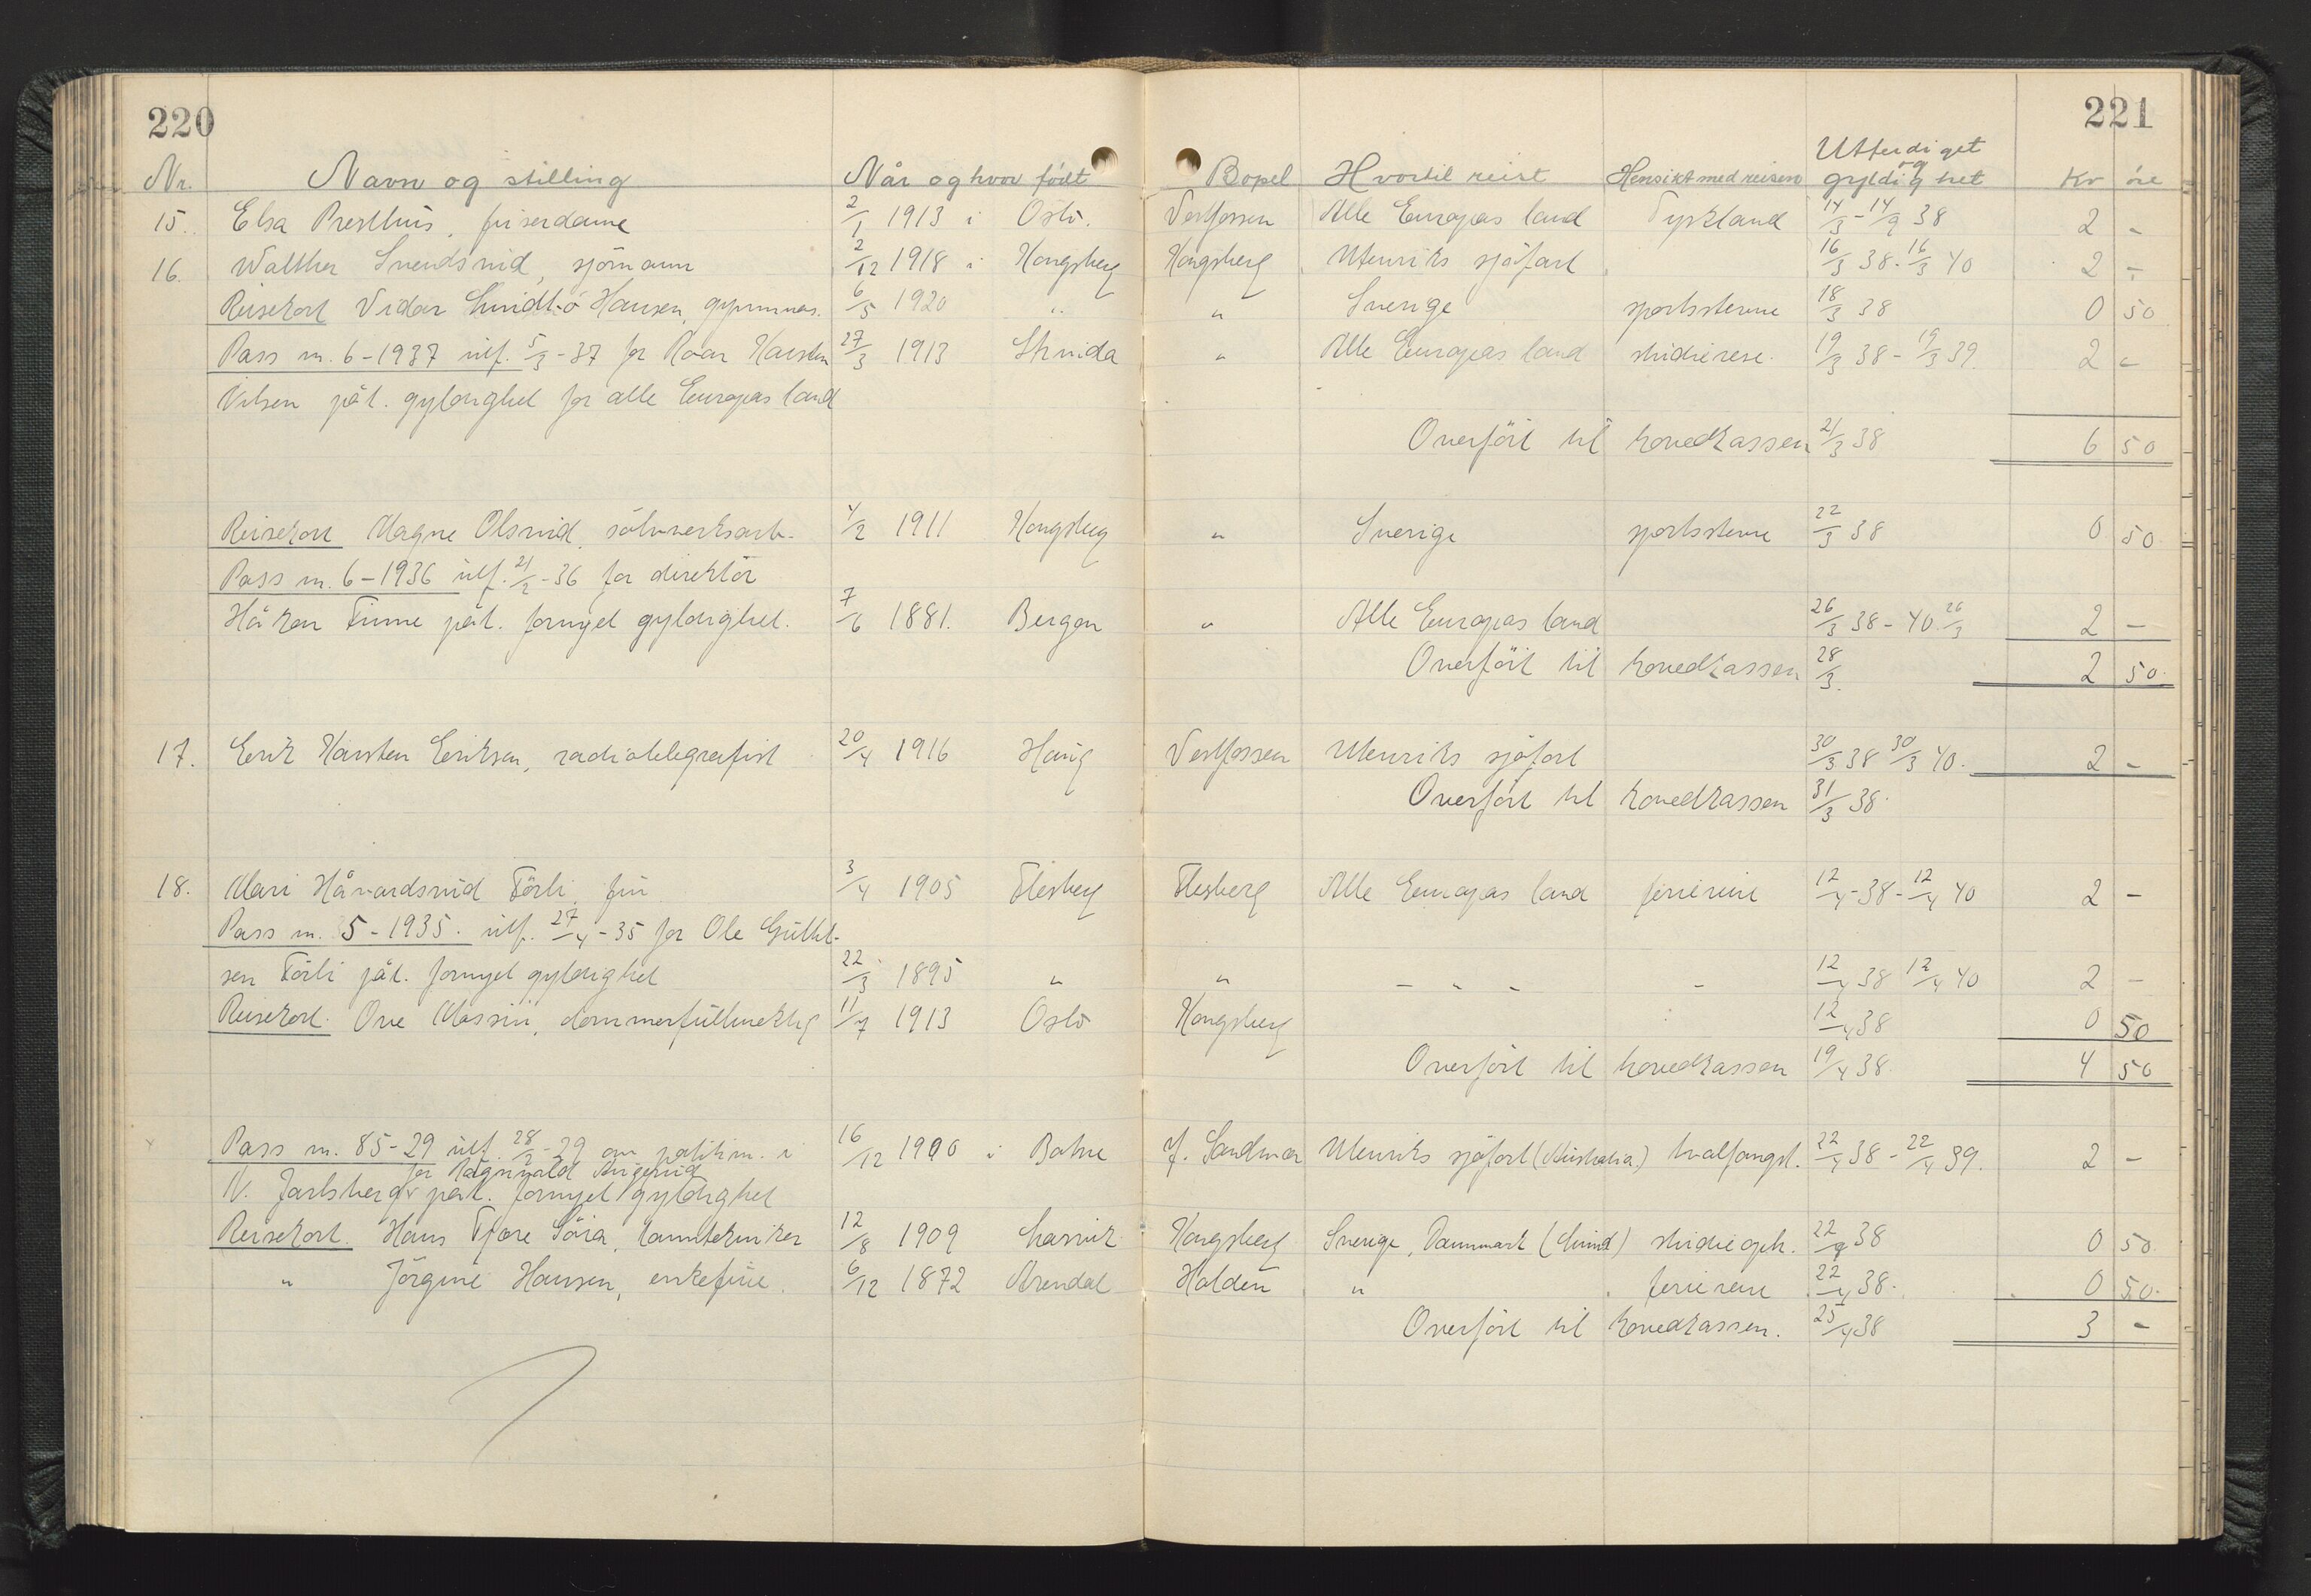 220
221
Nr. Navn og stilling Når og hvor født Bopel Hvortil reist Hensikt med reisen Utferdiget og gyldighet Kr øre
15. Elsa Presthus, friserdame 2/1 1913 i Oslo. Vestfossen Alle Europas land Tyskland 14/3 - 14/9 38 2 -
16. Walther Svendsrud, sjömann 2/12 1918 i Kongsberg Kongsberg Utenriks sjöfart 16/3 38 - 16/3 40 2 -
Reisekort Vidar Hansen, gymnas. 6/5 1920 " " Sverige sportsstevne 18/3 38 0 50
Pass nr. 6-1937 utf. 5/3-37 for Roar Karsten 27/3 1913 Strinda " Alle Europas land studiereise. 19/3 38 - 19/3 39. 2 -
Nilsen påt. gyldighet for alle Europas land
Overfört til hovedkassen 21/3 38 6 50
Reisekort Magne Olsrud, sölvverksarb. 4/2 1911 Kongsberg " Sverige sportsstevne 22/3 38 0 50
Pass nr. 6-1936 utf. 21/2-36 for direktör
Håkon Finne påt. fornyet gyldighet. 7/6 1881. Bergen " Alle Europas land 26/3 38 - 40 26/3 2 -
Overfört til hovedkassen 28/3. 2 50.
17. Erik Karsten Eriksen, radiotelegrafist 20/4 1916 Haug Vestfossen Utenriks sjöfart 30/3 38 30/3 40. 2 -
Overfört til hovedkassen 31/3 38.
18. Mari Håvardsrud Förli, fru 3/4 1905 Flesberg Flesberg Alle Europas land feriereise 12/4-38 - 12/4 40 2 -
Pass nr. 5-1935. utf. 27/4-35 for Ole Gullik-
sen Förli påt. fornyet gyldighet 22/3 1895 " " - " - - 12/4 38 12/4 40 2 -
Reisekort. Ove dommerfullmektig 11/7 1913 Oslo Kongsberg 12/4 38 0 50
Overfört til hovedkassen 19/4 38. 4 50
Pass nr. 85-29 utf. 28/2-29 av politim. i 16/12 1900 i Botne Y. Sandsvær Utenriks sjöfart (Australia) hvalfangst. 22/4 38 - 22/4 39. 2 -
for Ragnvald
N. Jarlsberg påt. fornyet gyldighet
Reisekort. Hans Tjore tanntekniker 12/8 1909 Larvik Kongsberg Sverige, Danmark studieoph. 22/4 38 0 50
" Jörgine Hansen, enkefrue. 6/12 1872 Arendal Halden " feriereise 22/4 38. 0 50.
Overfört til hovedkassen. 25/4 38 3 -